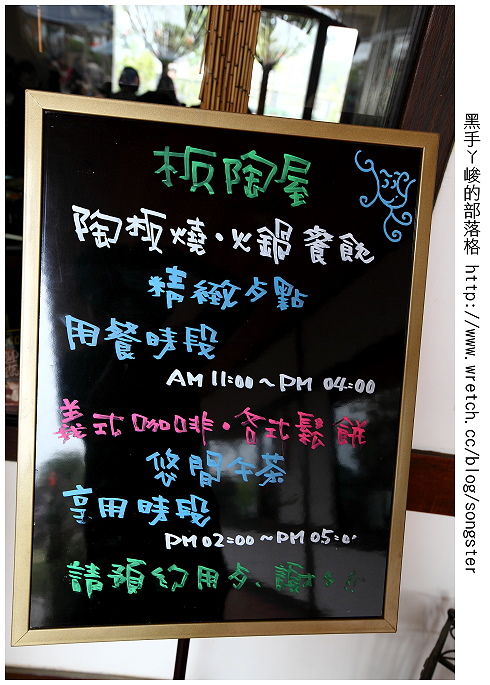 板陶屋
陶板燒·火鍋餐飲
精緻夕點
用餐時段
AM 11:00~PM 04:00
義式咖啡·各式鬆餅
悠閒午茶
享用時段
PM 02:00~PM 05:0
請預約用夕、謝
黑手ㄚ峻的部落格 http://www.wretch.cc/blog/songster